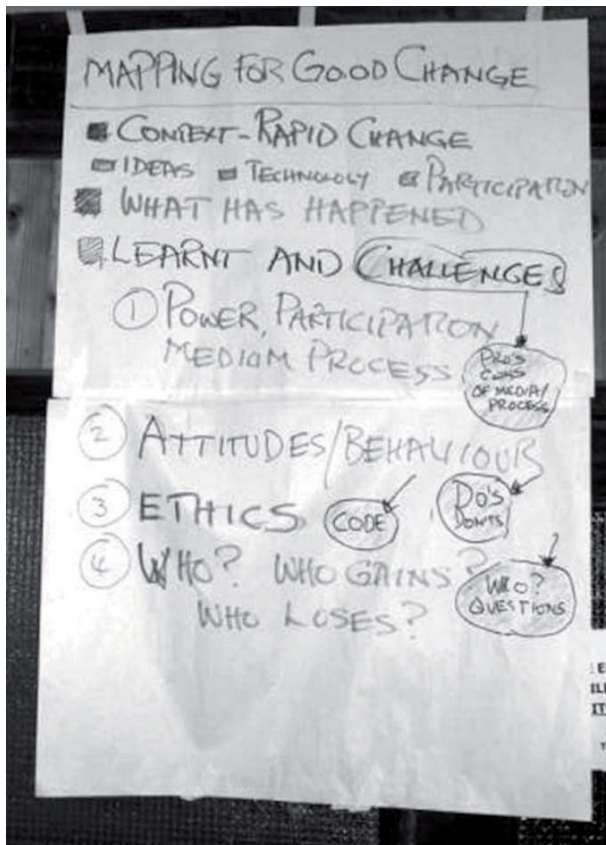 MAPPING FOR GOOD CHANGE
CONTEXT-RAPID CHANGE
IDEAS TECHNOLOGY PARTICIPATION
WHAT HAS HAPPENED
LEARNT AND CHALLENGES
① POWER, PARTICIPATION
MEDIUM PROCESS
PRO'S
CONS
OF MEDIA/
PROCESS
② ATTITUDES/BEHAVIOUR
③ ETHICS CODE
DO'S
DON'TS
④ WHO? WHO GAINS?
WHO LOSES?
WHO?
QUESTIONS